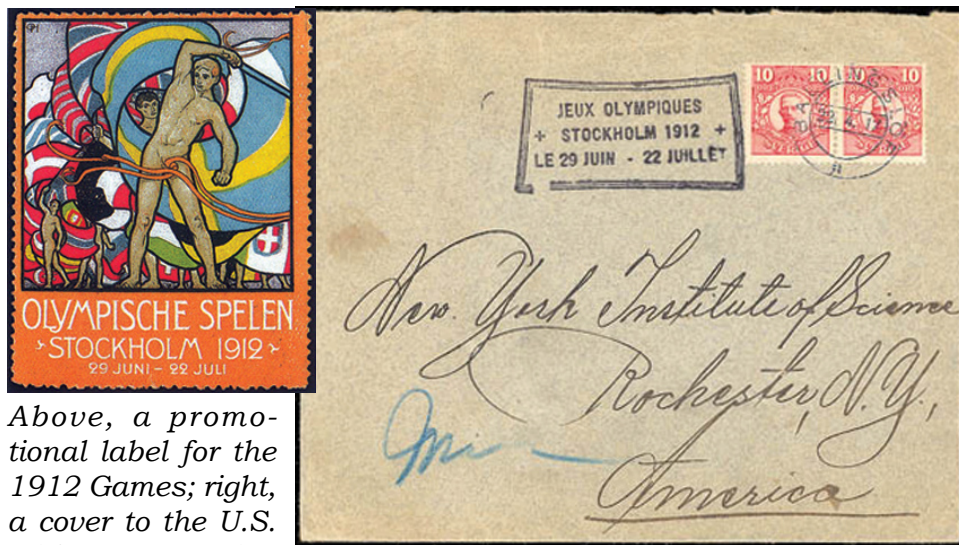 OLYMPISCHE SPELEN
STOCKHOLM 1912
29 JUNI - 22 JULI
Above, a promo-
tional label for the
1912 Games; right,
a cover to the U.S.
JEUX OLYMPIQUES
+ STOCKHOLM 1912 +
LE 29 JUIN - 22 JUILLET
10 10 10 10
New York Institute of Science
Rochester, N.Y.,
America